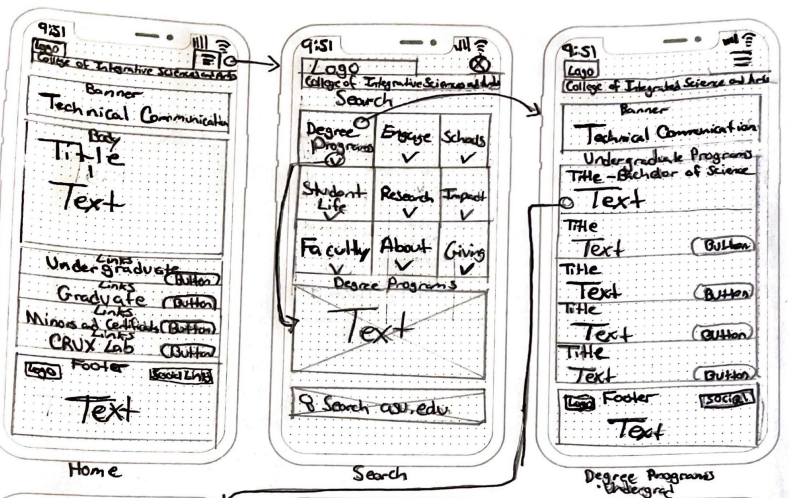 9:51
Logo
College of Integrative Sciences and Arts
Banner
Technical Communication
Body
Title
Text
Links
Undergraduate
Button
Links
Graduate
Button
Links
Minors and Certificates
Button
Links
CRUX Lab
Button
Logo
Footer
Social Links
Text
Home
9:51
Logo
College of Integrative Sciences and Arts
Search
Degree Programs
Engage
Schools
Student Life
Research
Impact
Faculty
About
Giving
Degree Programs
Text
Search asu.edu
Search
9:51
Logo
College of Integrated Science and Arts
Banner
Technical Communication
Undergraduate Programs
Title - Bachelor of Science
Text
Title
Text
Button
Title
Text
Button
Title
Text
Button
Title
Text
Button
Logo
Footer
Social
Text
Degree Programs
Undergrad